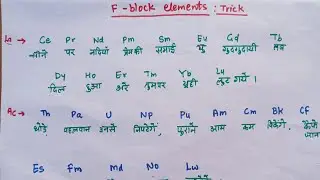 F-block elements : Trick
La Ce Pr Nd Pm Sm Eu Gd Tb
सीने पर नदियाँ प्रेमकी समाई यु गुदगुदायी तब
Dy Ho Er Tm Yb Lu
दिल हुआ अरे तुमपर लुट गये ।
Ac Th Pa U Np Pu Am Cm Bk Cf
थोड़े पहलवान उनसे निपटेगें, पुराने आम कम बिकेगें, कैसे
जान
Es Fm Md No Lw